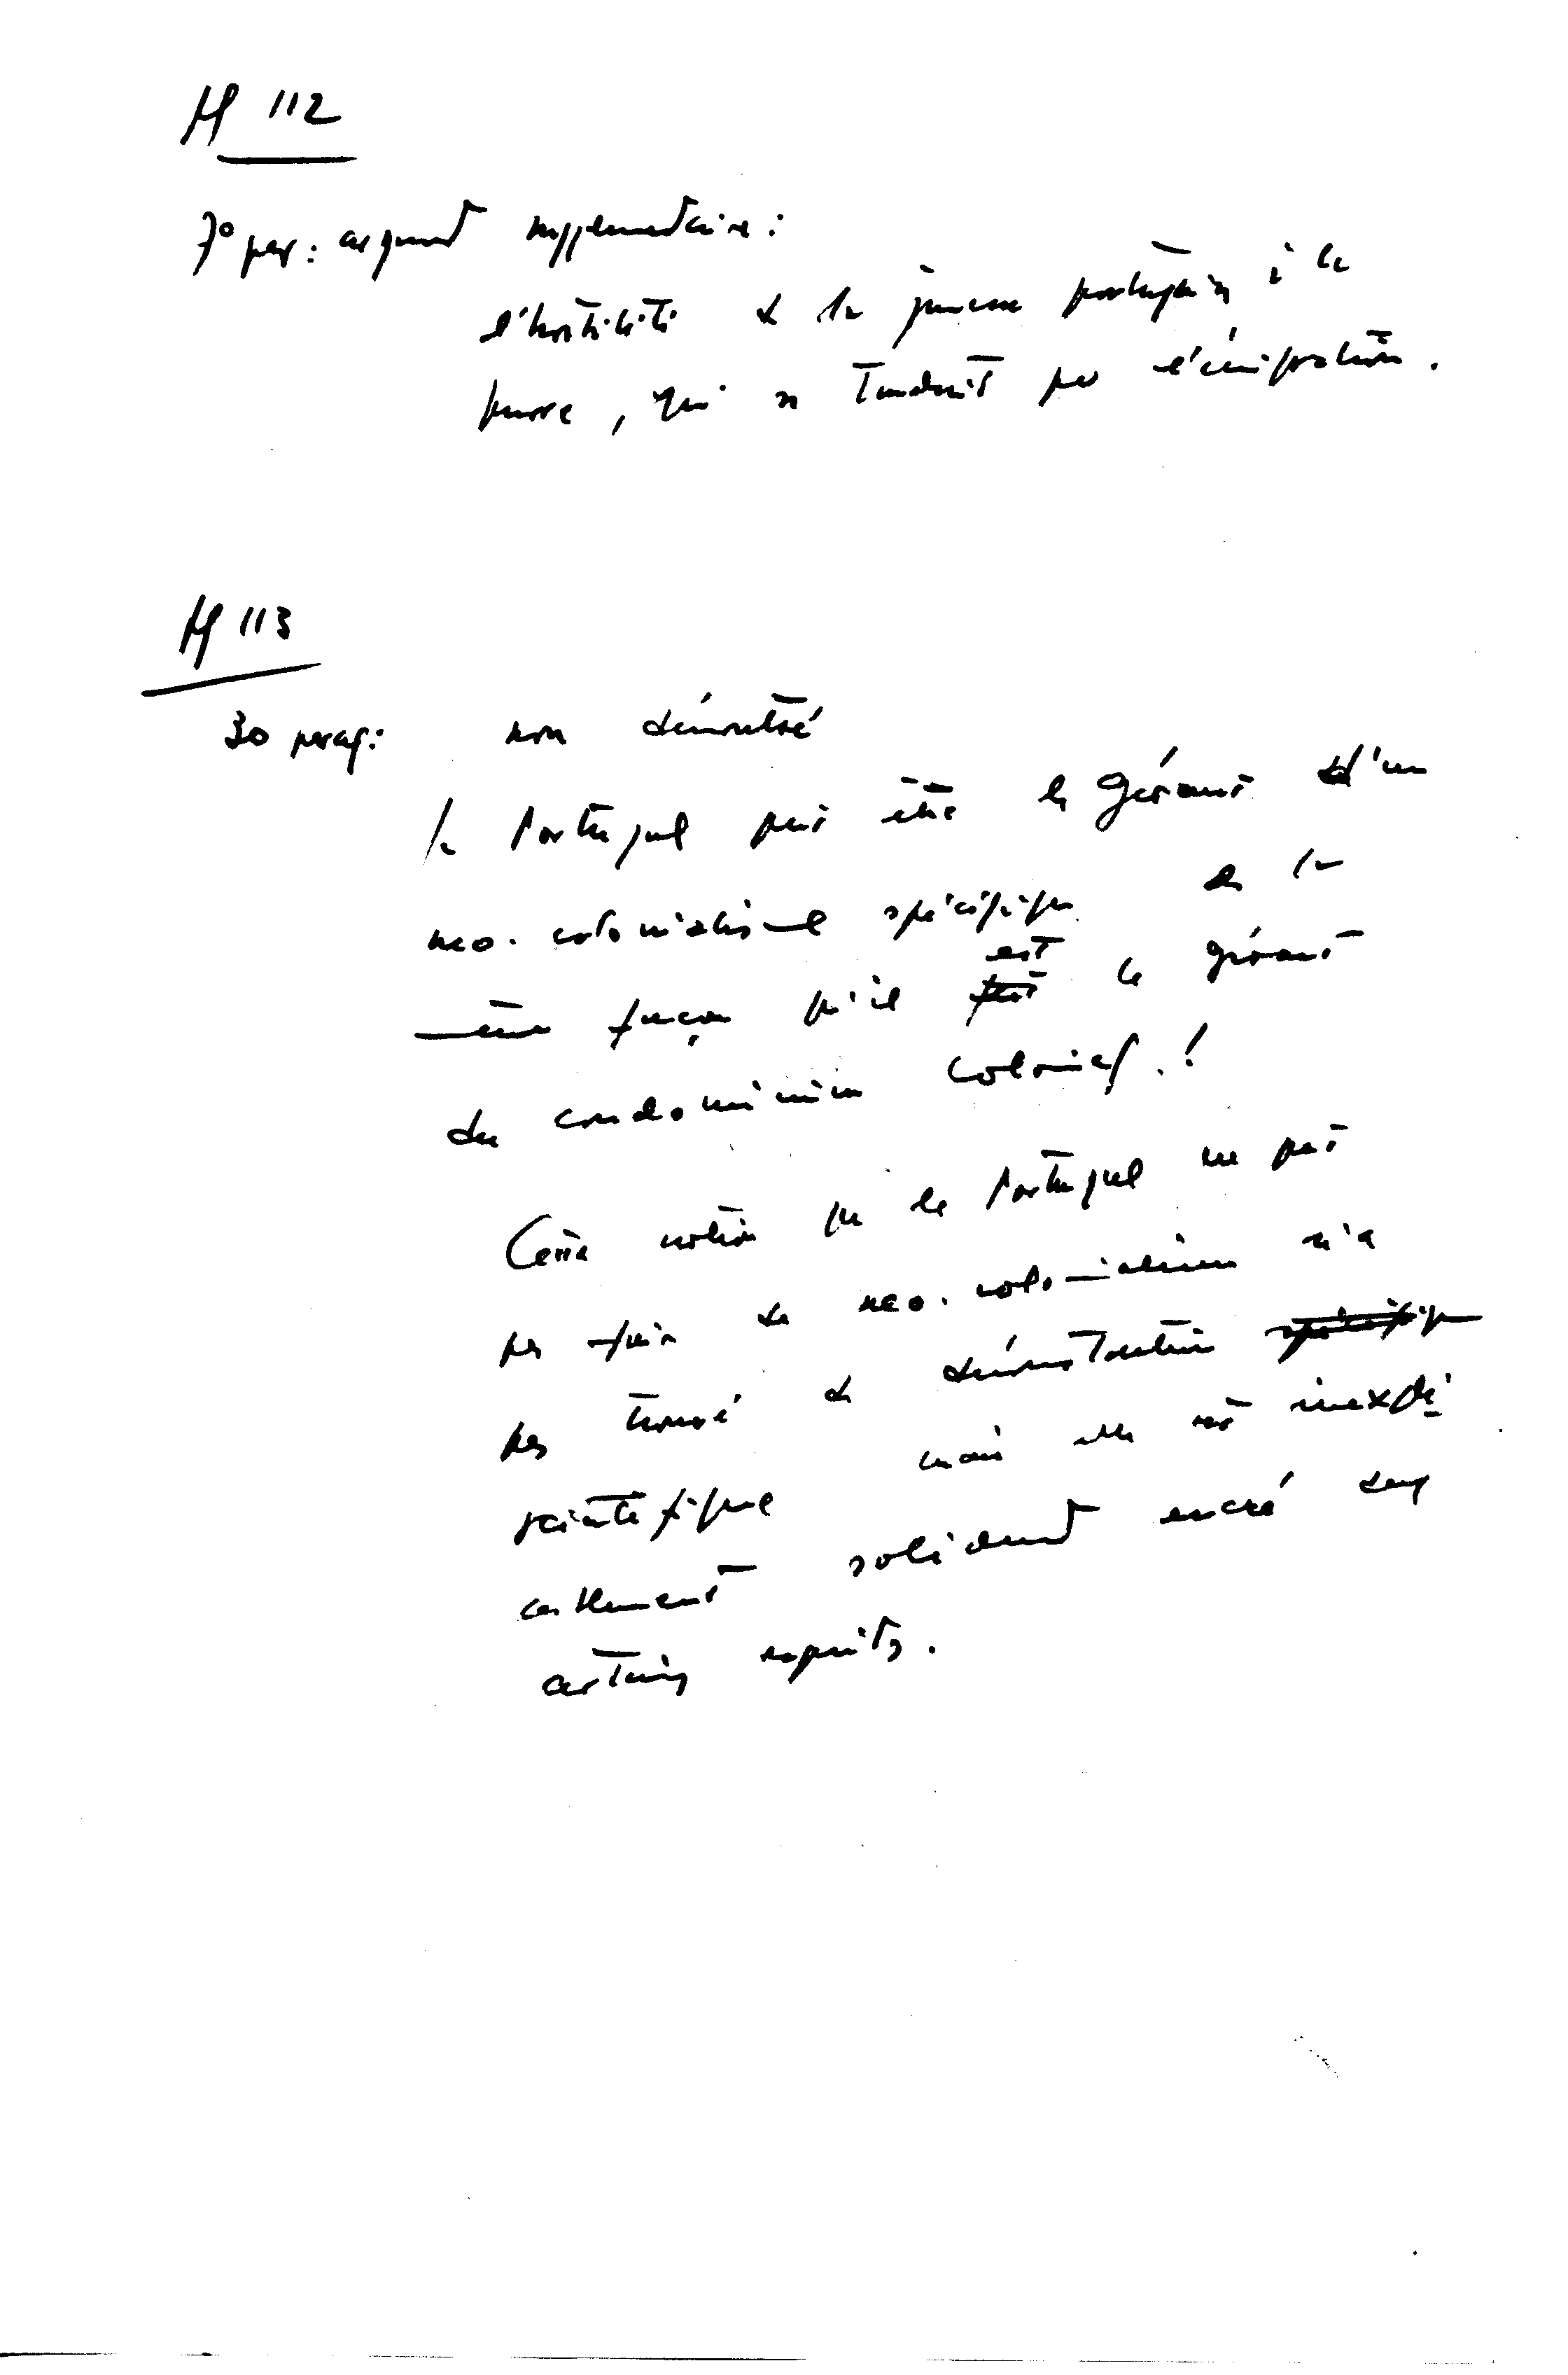 M 112
7° par: argument supplémentaire:
l'hostilité de la jeunesse portugaise à la
guerre, qui se traduit par l'émigration.
M 113
3° parag: non démontré
le Portugal peut être le gérant d'un
neo-colonialisme spécifique de la
même façon qu'il est le gérant
du condominium colonial.!
Cette notion que le Portugal ne peut
pas faire de neo-colonialisme n'a
pas trouvé de démonstration spécifique
scientifique mais elle est inextri
cablement solidement encré dans
certains esprits.